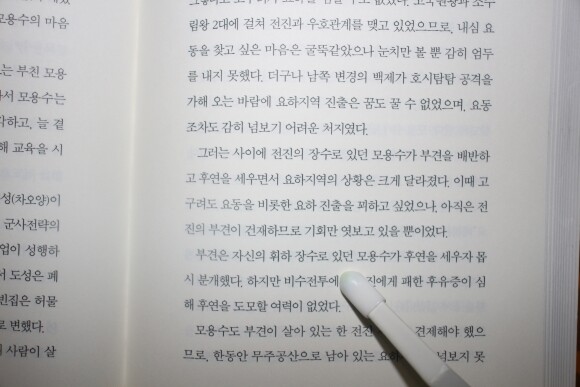 모용수의 마음
는 부친 모용
모용수는
각하고, 늘 곁
해 교육을 시
성(차오양)이
군사전략의
업이 성행하
서 도성은 폐
빈집은 허물
로 변했다.
사람이 살
없었다. 고국원왕과 소수
림왕 2대에 걸쳐 전진과 우호관계를 맺고 있었으므로, 내심 요
동을 찾고 싶은 마음은 굴뚝같았으나 눈치만 볼 뿐 감히 엄두
를 내지 못했다. 더구나 남쪽 변경의 백제가 호시탐탐 공격을
가해 오는 바람에 요하지역 진출은 꿈도 꿀 수 없었으며, 요동
조차도 감히 넘보기 어려운 처지였다.
그러는 사이에 전진의 장수로 있던 모용수가 부견을 배반하
고 후연을 세우면서 요하지역의 상황은 크게 달라졌다. 이때 고
구려도 요동을 비롯한 요하 진출을 꾀하고 싶었으나, 아직은 전
진의 부견이 건재하므로 기회만 엿보고 있을 뿐이었다.
부견은 자신의 휘하 장수로 있던 모용수가 후연을 세우자 몹
시 분개했다. 하지만 비수전투에 진에게 패한 후유증이 심
해 후연을 도모할 여력이 없었다.
모용수도 부견이 살아 있는 한 전진 견제해야 했으
므로, 한동안 무주공산으로 남아 있는 요하 넘보지 못